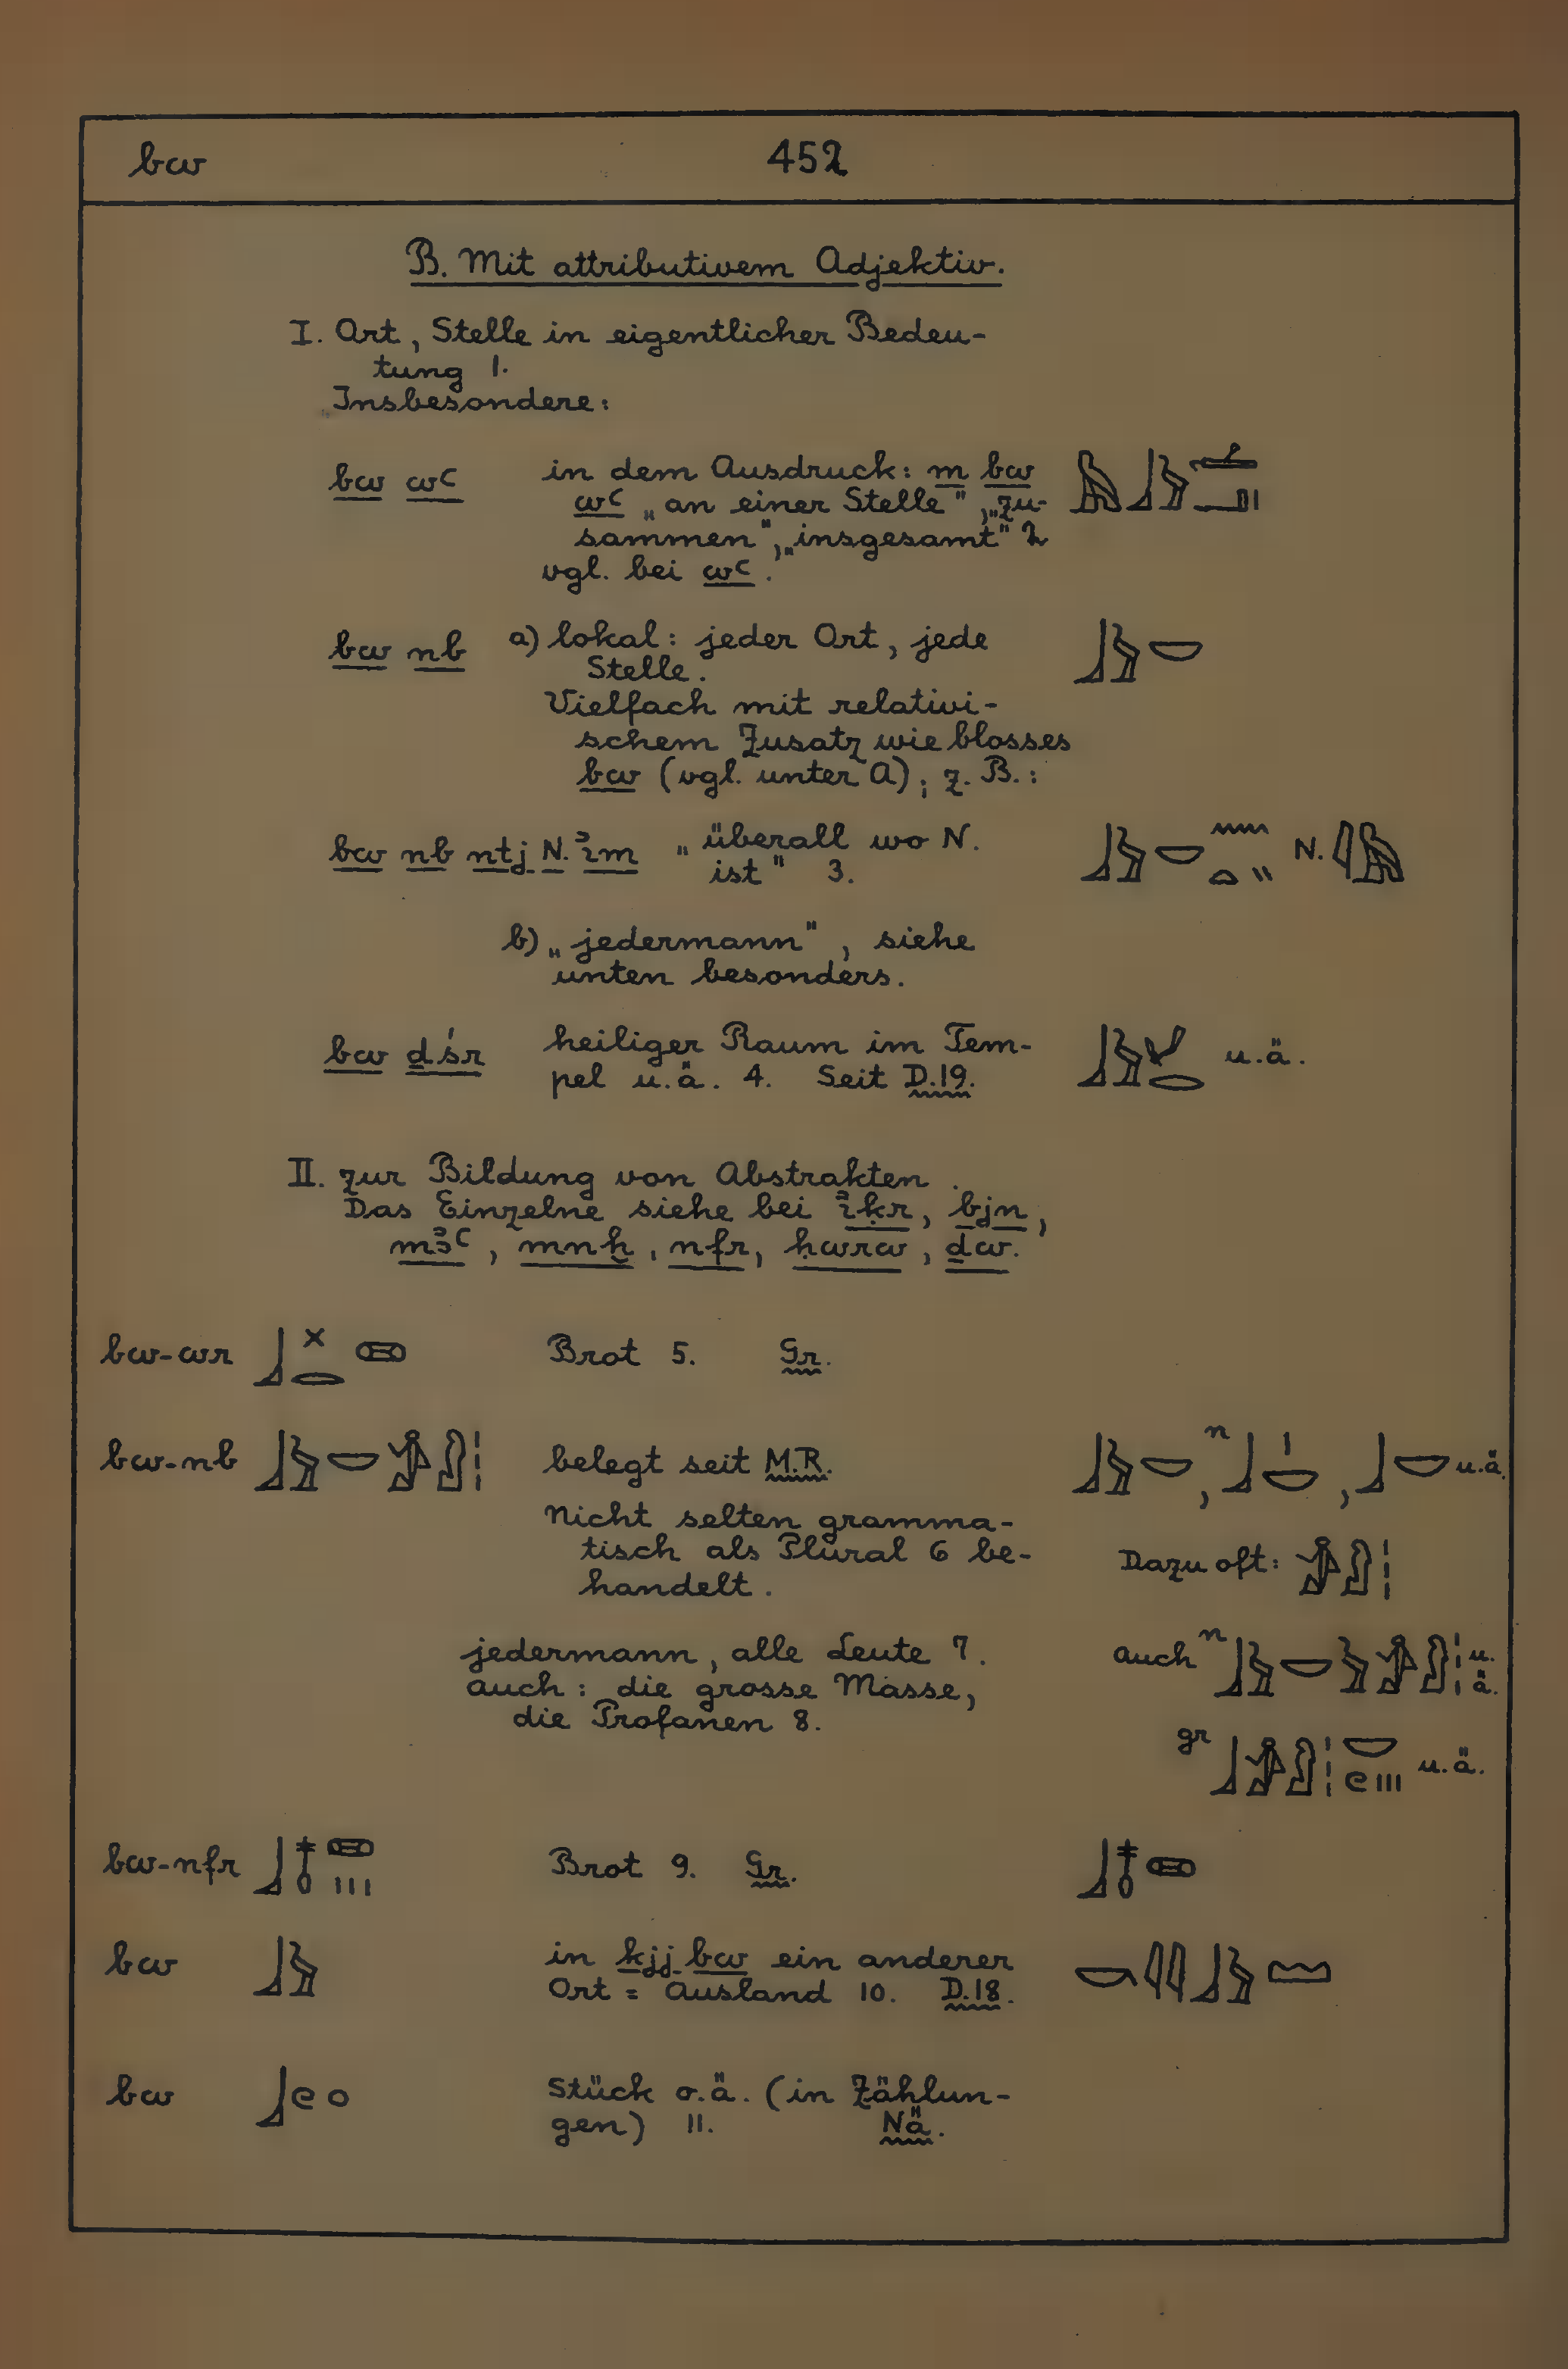 bw 452
B. Mit attributivem Adjektiv.
I. Ort, Stelle in eigentlicher Bedeu-
tung 1.
Insbesondere:
bw wꜥ in dem Ausdruck: m bw 𓅓𓃀𓅱𓌡𓂝𓏤
wꜥ „an einer Stelle", „zu-
sammen", „insgesamt" 2
vgl. bei wꜥ.
bw nb a) lokal: jeder Ort, jede 𓃀𓅱𓎟
Stelle.
Vielfach mit relativi-
schem Zusatz wie blosses
bw (vgl. unter A); z. B.:
bw nb ntj N. ꞽm „überall wo N. 𓃀𓅱𓎟𓈖𓏏𓏭 N. 𓇋𓅓
ist" 3.
b) „jedermann", siehe
unten besonders.
bw ḏśr heiliger Raum im Tem- 𓃀𓅱𓂦𓂋 u.ä.
pel u.ä. 4. Seit D.19.
II. zur Bildung von Abstrakten.
Das Einzelne siehe bei ꞽḳr, bjn,
mꜣꜥ, mnḫ, nfr, ḥwrw, ḏw.
bw-wr 𓃀𓏴𓂋𓏐 Brot 5. Gr.
bw-nb 𓃀𓅱𓎟𓀀𓁐𓏥 belegt seit M.R. 𓃀𓅱𓎟, n 𓃀𓎟𓏤, 𓃀𓎟 u.ä.
Nicht selten gramma-
tisch als Plural 6 be- Dazu oft: 𓀀𓁐𓏥
handelt.
jedermann, alle Leute 7. auch n 𓃀𓅱𓎟𓅱𓀀𓁐𓏥 u.
auch: die grosse Masse, ä.
die Profanen 8.
gr 𓃀𓀀𓁐𓏥𓎟𓏲𓏥 u.ä.
bw-nfr 𓃀𓄤𓏐𓏥 Brot 9. Gr. 𓃀𓄤𓏐
bw 𓃀𓅱 in kjj bw ein anderer 𓎡𓇋𓇋𓃀𓅱𓈉
Ort = Ausland 10. D.18.
bw 𓃀𓏲𓈒 Stück o.ä. (in Zählun-
gen) 11. Nä.